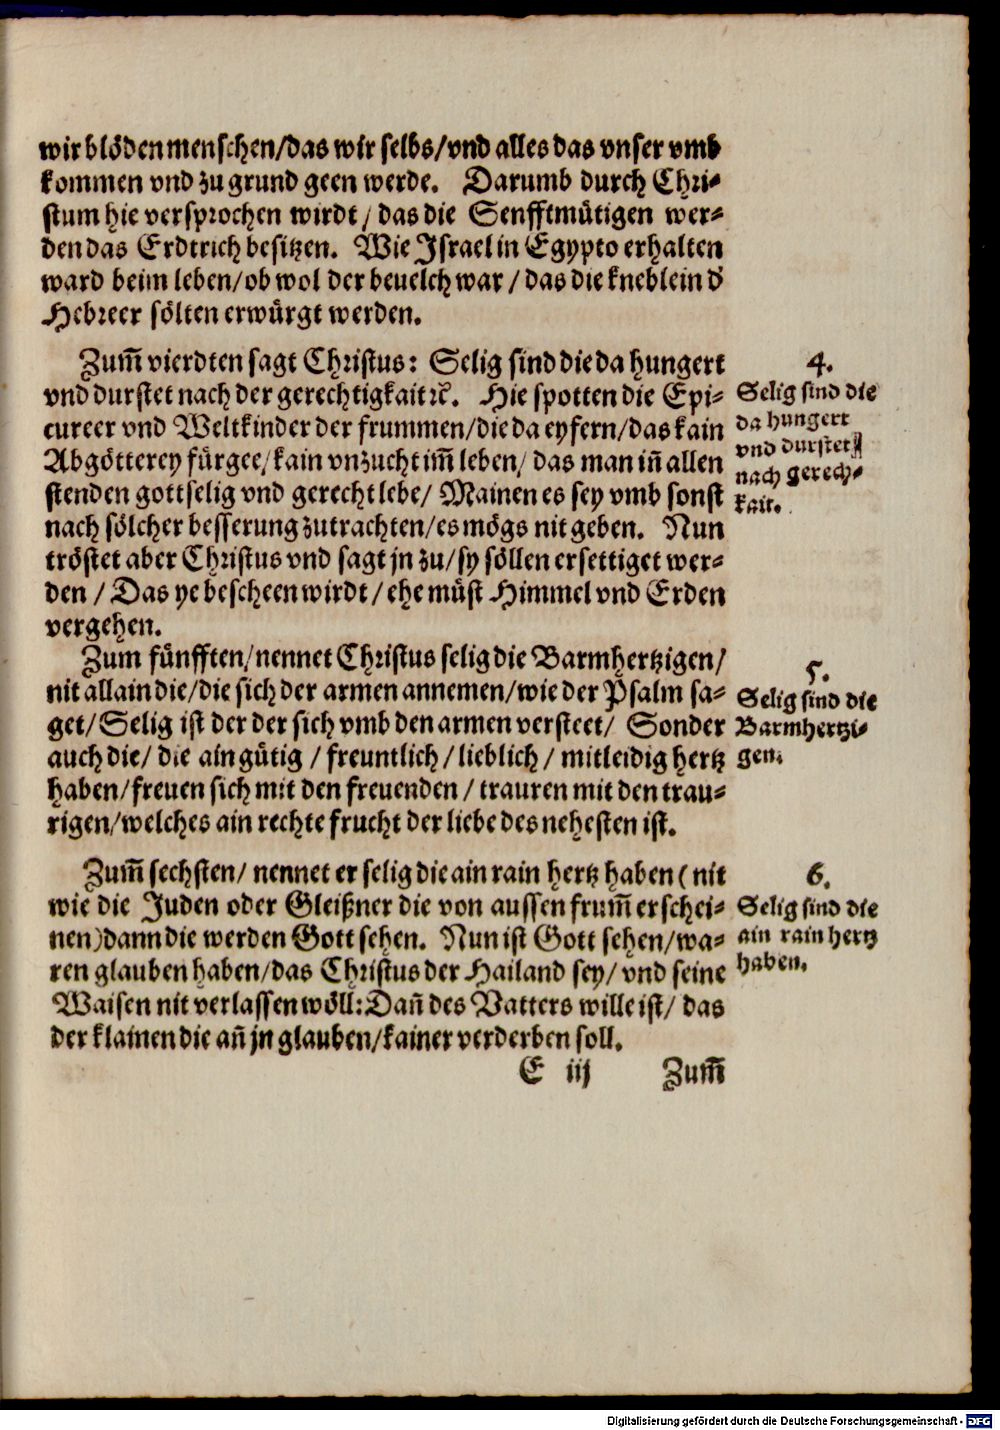 wir blöden menschen/das wir selbs/vnd alles das vnser vmb
kommen vnd zu grund geen werde. Darumb durch Chri-
stum hie versprochen wirdt/ das die Senfftmütigen wer-
den das Erdtrich besitzen. Wie Israel in Egypto erhalten
ward beim leben/ob wol der beuelch war/ das die kneblein d'
Hebreer sölten erwürgt werden.
Zum̃ vierdten sagt Christus: Selig sind die da hungert
vnd durstet nach der gerechtigkait ꝛc̃. Hie spotten die Epi-
cureer vnd Weltkinder der frummen/die da eyfern/das kain
Abgötterey fürgee/kain vnzucht im̃ leben/ das man in̄ allen
stenden gottselig vnd gerecht lebe/ Mainen es sey vmb sonst
nach sölcher besserung zutrachten/es mögs nit geben. Nun
tröstet aber Christus vnd sagt jn zu/sy söllen ersettiget wer-
den/ Das ye bescheen wirdt/ehe müst Himmel vnd Erden
vergehen.
4.
Selig sind die
da hungert
vnd durstet
nach gerech-
kait.
Zum fünfften/nennet Christus selig die Barmhertzigen/
nit allain die/die sich der armen annemen/wie der Psalm sa-
get/Selig ist der der sich vmb den armen versteet/ Sonder
auch die/ die ain gütig/ freuntlich/lieblich/ mitleidig hertz
haben/freuen sich mit den freuenden/ trauren mit den trau-
rigen/welches ain rechte frucht der liebe des nehesten ist.
5.
Selig sind die
Barmhertzi-
gen.
Zum̃ sechsten/ nennet er selig die ain rain hertz haben (nit
wie die Juden oder Gleißner die von aussen frum̃ erschei-
nen) dann die werden Gott sehen. Nun ist Gott sehen/wa-
ren glauben haben/das Christus der Hailand sey/ vnd seine
Waisen nit verlassen wöll: Dan̄ des Vatters wille ist/ das
der klainen die an̄ jn glauben/kainer verderben soll.
6.
Selig sind die
ain rain hertz
haben.
E iij Zum̃
Digitalisierung gefördert durch die Deutsche Forschungsgemeinschaft - DFG